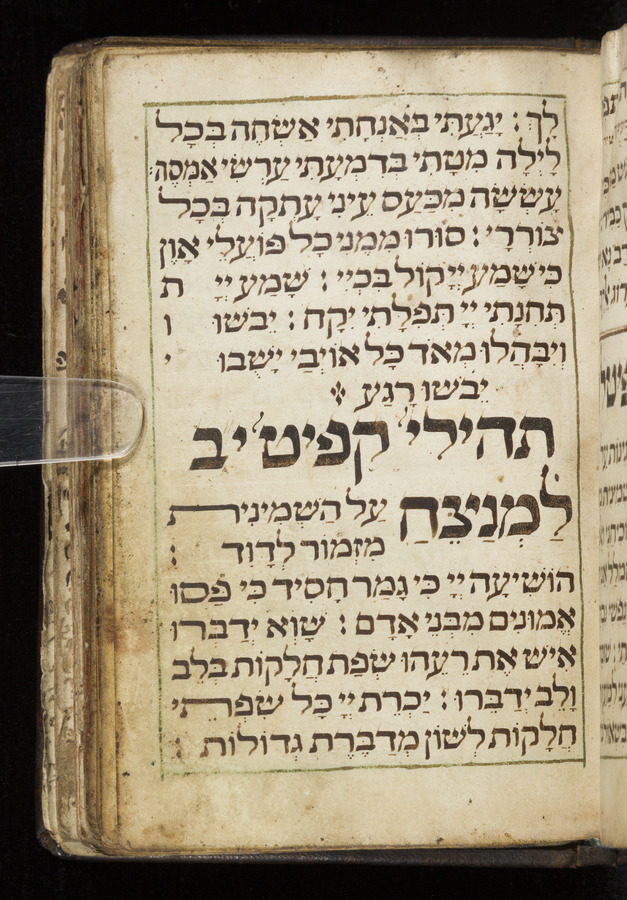 לָךְ : יָגַעְתִּי בְּאַנְחָתִי אַשְׂחֶה בְכָל
לַיְלָה מִטָּתִי בְּדִמְעָתִי עַרְשִׂי אַמְסֶה :
עָשְׁשָׁה מִכַּעַס עֵינִי עָתְקָה בְּכָל
צוֹרְרָי : סוּרוּ מִמֶּנִּי כָּל פּוֹעֲלֵי אָוֶן
כִּי שָׁמַע יְיָ קוֹל בִּכְיִי : שָׁמַע יְיָ ת
תְּחִנָּתִי יְיָ תְּפִלָּתִי יִקָּח : יֵבֹשׁוּ ו
וְיִבָּהֲלוּ מְאֹד כָּל אוֹיְבַי יָשֻׁבוּ י
יֵבֹשׁוּ רָגַע
תהילי' קפיט' יב
לַמְנַצֵּחַ עַל הַשְּׁמִינִית
מִזְמוֹר לְדָוִד :
הוֹשִׁיעָה יְיָ כִּי גָמַר חָסִיד כִּי פַסּוּ
אֱמוּנִים מִבְּנֵי אָדָם : שָׁוְא יְדַבְּרוּ
אִישׁ אֶת רֵעֵהוּ שְׂפַת חֲלָקוֹת בְּלֵב
וָלֵב יְדַבֵּרוּ : יַכְרֵת יְיָ כָּל שִׂפְתֵי
חֲלָקוֹת לָשׁוֹן מְדַבֶּרֶת גְּדוֹלוֹת :